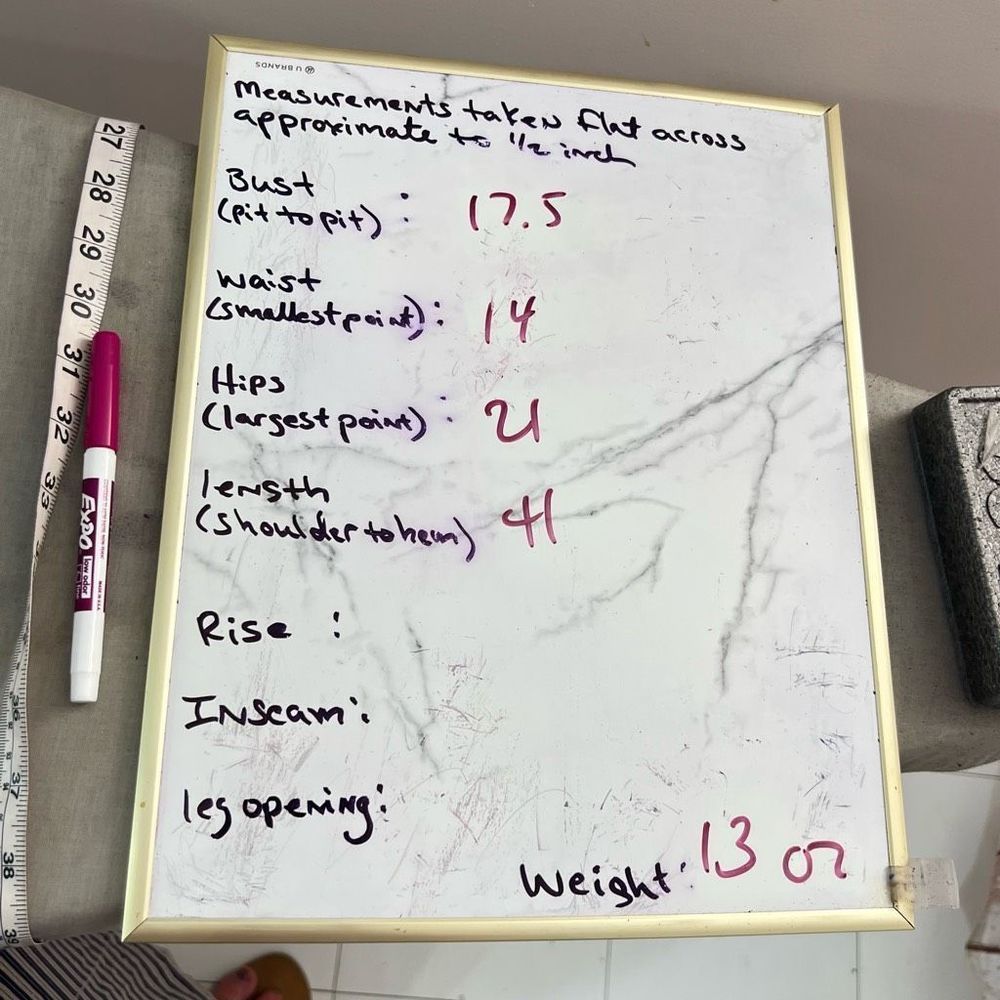 U BRANDS
Measurements taken flat across
approximate to 1/2 inch
Bust
(pit to pit) : 17.5
waist
(smallest point): 14
Hips
(largest point) : 21
length
(shoulder to hem) 41
Rise :
Inseam:
leg opening:
Weight: 13 oz
27
28
29
30
31
32
33
EXPO
low odor
36
37
38
39